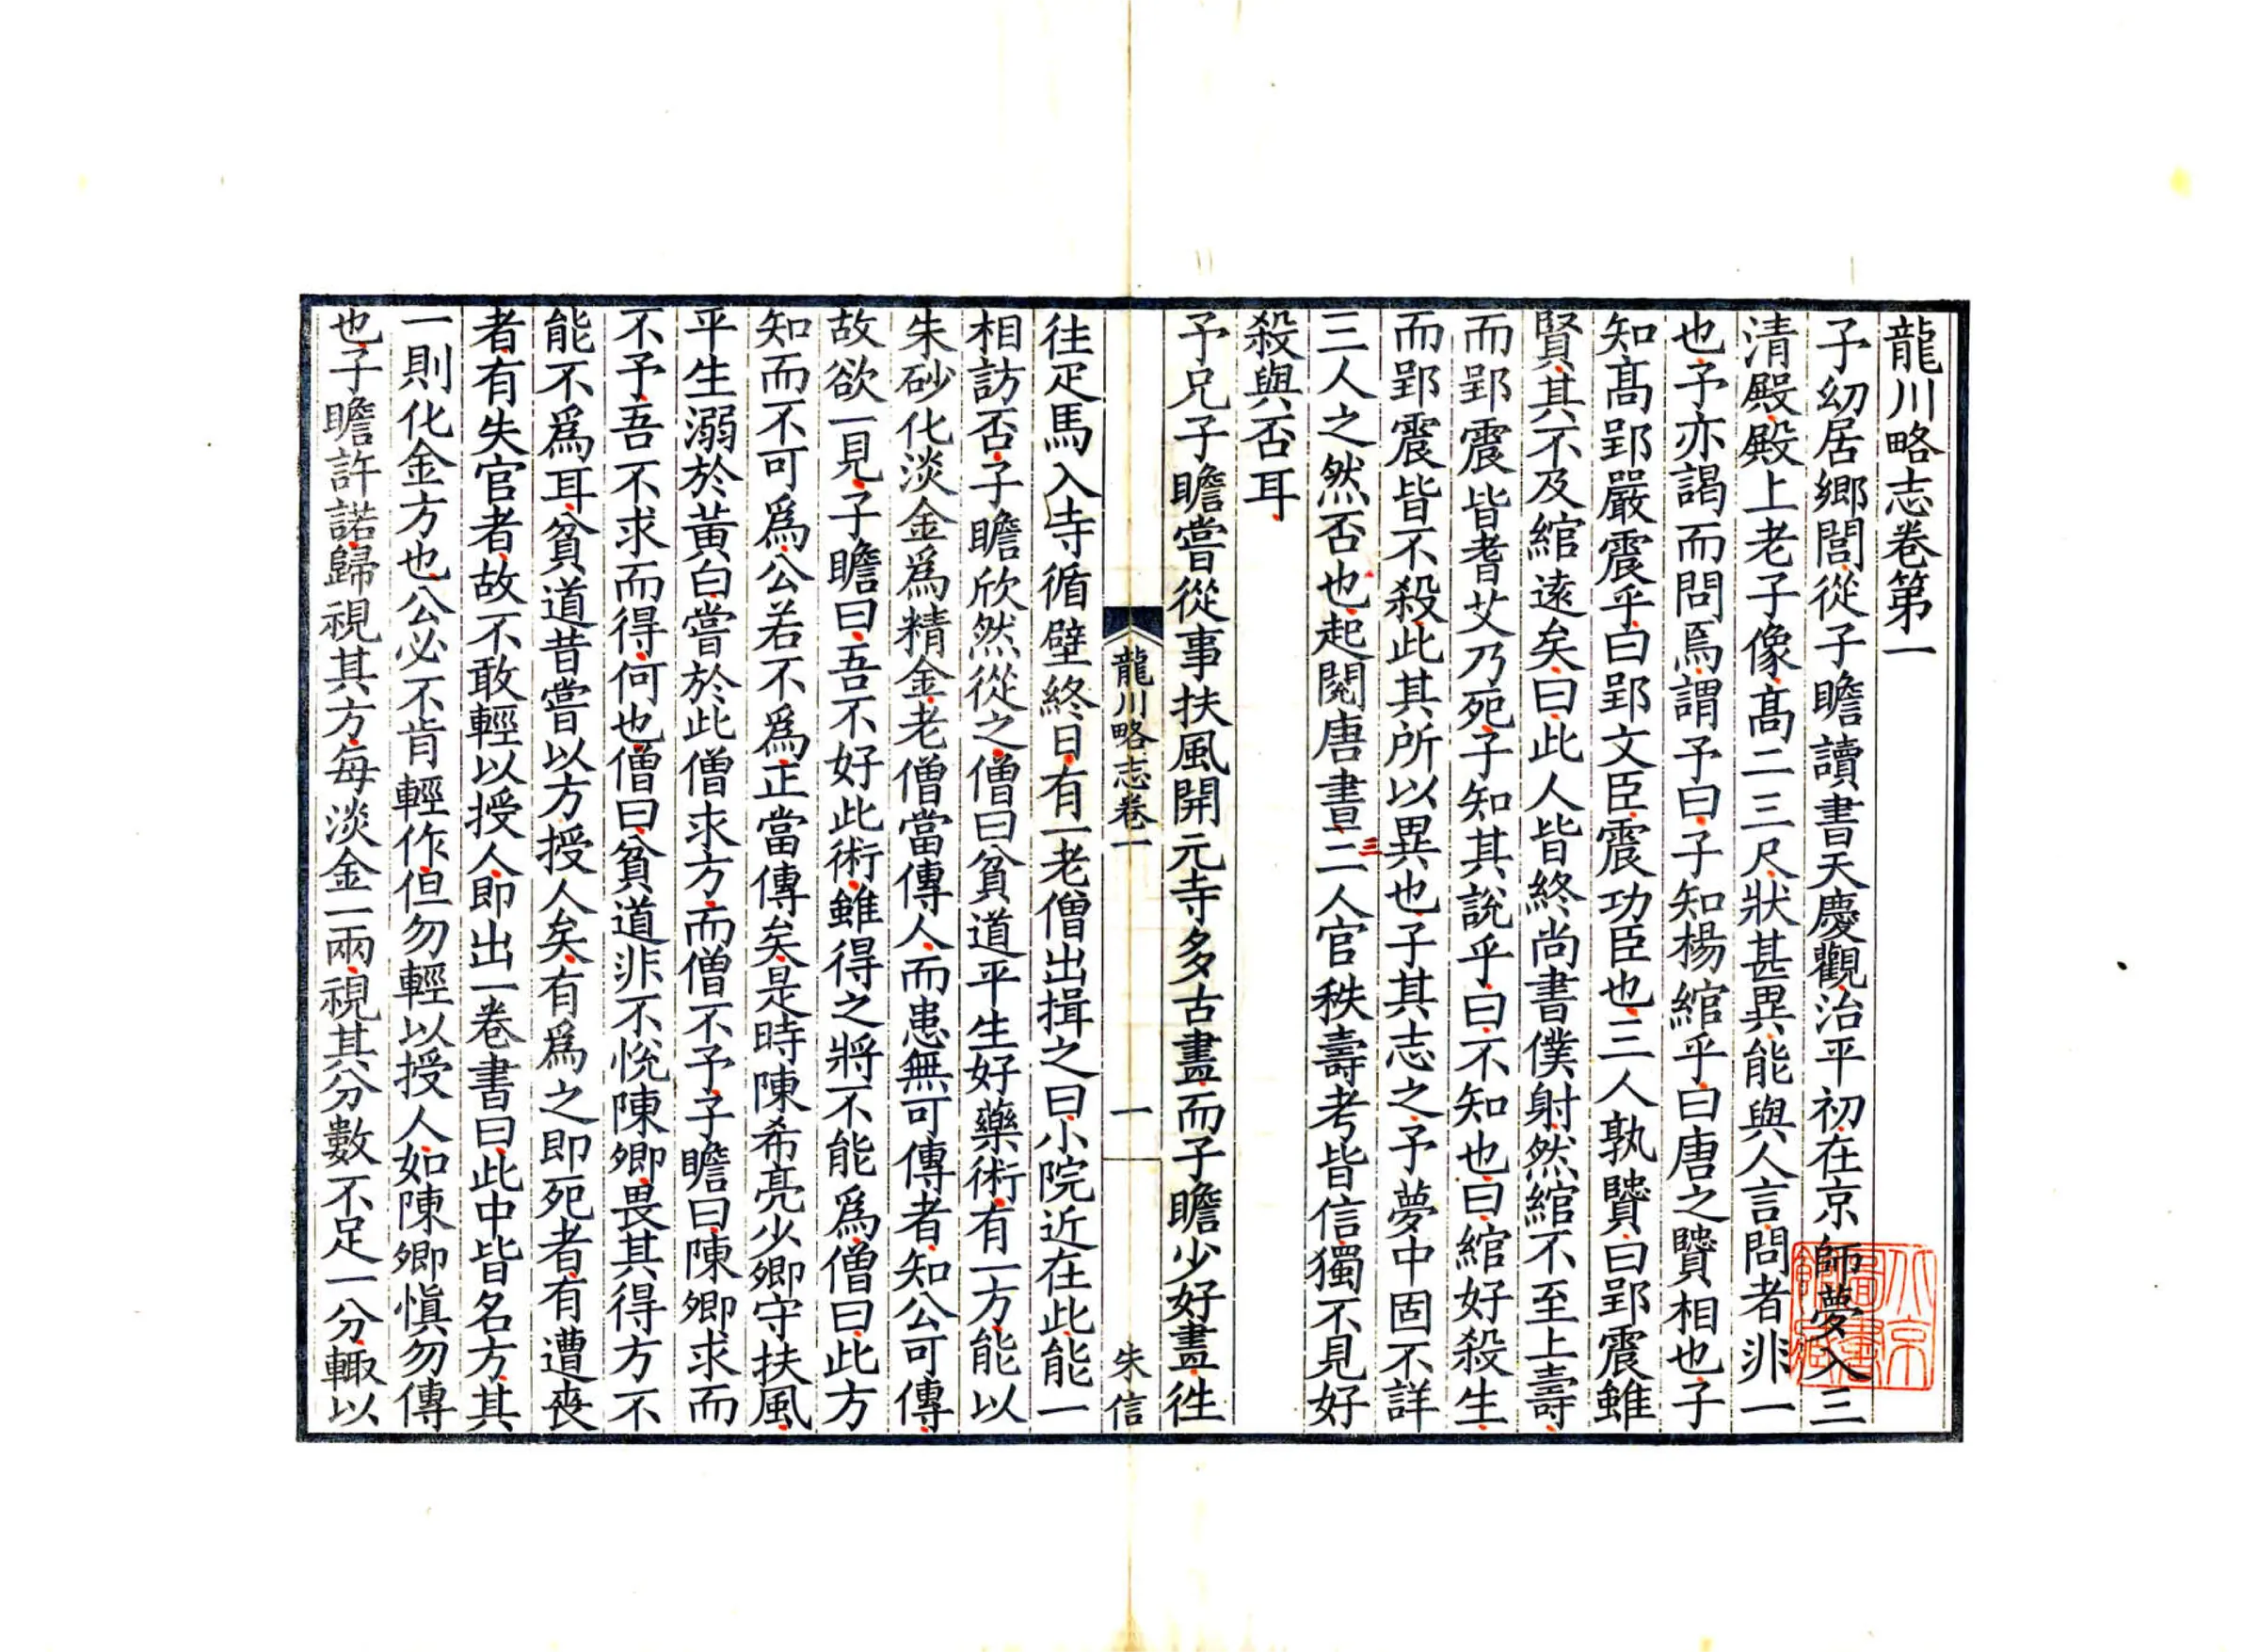 龍川略志卷第一
予幼居鄉閭從子瞻讀書天慶觀治平初在京師夢入三
清殿殿上老子像高二三尺狀甚異能與人言問者非一
也予亦謁而問焉謂予曰子知楊綰乎曰唐之贒相也子
知髙郢嚴震乎曰郢文臣震功臣也三人孰贒曰郢震雖
賢其不及綰遠矣曰此人皆終尚書僕射然綰不至上壽
而郢震皆耆艾乃死子知其說乎曰不知也曰綰好殺生
而郢震皆不殺此其所以異也子其志之予夢中固不詳
三人之然否也起閱唐書二人官秩壽考皆信獨不見好
三
殺與否耳
予兄子瞻嘗從事扶風開元寺多古畫而子瞻少好畫往
龍川略志卷一
一
朱信
往疋馬入寺循壁終日有一老僧出揖之曰小院近在此能一
相訪否子瞻欣然從之僧曰貧道平生好藥術有一方能以
朱砂化淡金爲精金老僧當傳人而患無可傳者知公可傳
故欲一見子瞻曰吾不好此術雖得之將不能爲僧曰此方
知而不可爲公若不爲正當傳矣是時陳希亮少卿守扶風
平生溺於黃白嘗於此僧求方而僧不予子瞻曰陳卿求而
不予吾不求而得何也僧曰貧道非不悅陳卿畏其得方不
能不爲耳貧道昔嘗以方授人矣有爲之即死者有遭喪
者有失官者故不敢輕以授人即出一卷書曰此中皆名方其
一則化金方也公必不肯輕作但勿輕以授人如陳卿愼勿傳
也子瞻許諾歸視其方每淡金一兩視其分數不足一分輙以
北京圖書館藏